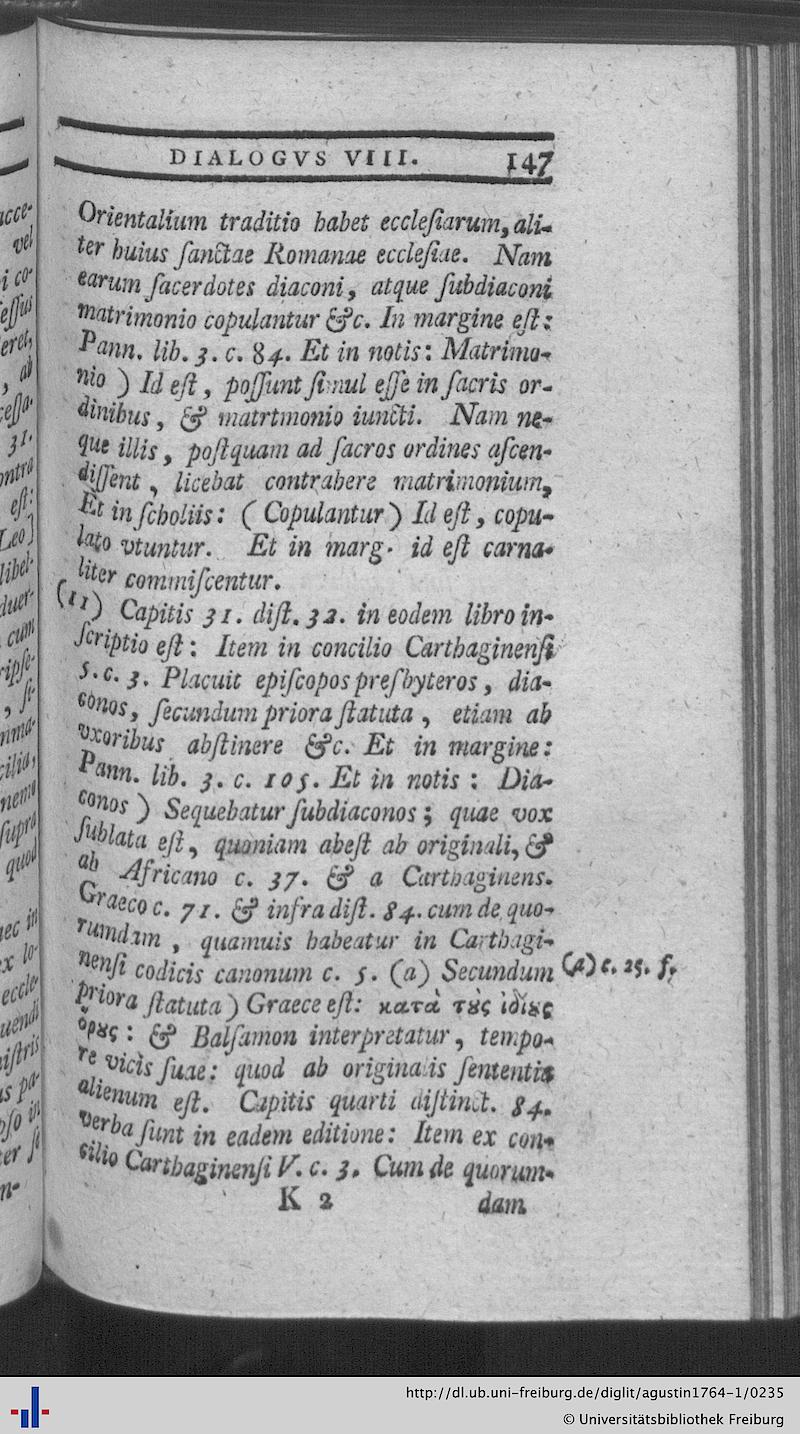 DIALOGVS VIII. 147
Orientalium traditio habet ecclesiarum, ali-
ter huius sanctae Romanae ecclesiae. Nam
earum sacerdotes diaconi, atque subdiaconi
matrimonio copulantur &c. In margine est:
Pann. lib. 3. c. 84. Et in notis: Matrimo-
nio ) Id est, possunt simul esse in sacris or-
dinibus, & matrtmonio iuncti. Nam ne-
que illis, postquam ad sacros ordines ascen-
dissent, licebat contrahere matrimonium,
Et in scholiis: ( Copulantur ) Id est, copu-
lato vtuntur. Et in marg. id est carna-
liter commiscentur.
(11) Capitis 31. dist. 32. in eodem libro in-
scriptio est: Item in concilio Carthaginensi
5. c. 3. Placuit episcopos presbyteros, dia-
conos, secundum priora statuta, etiam ab
vxoribus abstinere &c. Et in margine:
Pann. lib. 3. c. 105. Et in notis: Dia-
conos ) Sequebatur subdiaconos; quae vox
sublata est, quoniam abest ab originali, &
ab Africano c. 37. & a Carthaginens.
Graeco c. 71. & infra dist. 84. cum de quo-
rumdam, quamuis habeatur in Carthagi-
nensi codicis canonum c. 5. (a) Secundum
(a) c. 25. f.
priora statuta ) Graece est: κατὰ τȣ̀ς ἰδίȣς
ὅρȣς: & Balsamon interpretatur, tempo-
re vicis suae: quod ab originalis sententia
alienum est. Capitis quarti distinct. 84.
verba sunt in eadem editione: Item ex con-
cilio Carthaginensi V. c. 3. Cum de quorum-
K 2 dam
acce-
vel
i co-
essus
eret,
, ab
cessa-
31.
ontra
est:
Leo]
libel-
duer-
cum
ripse-
, si-
nma-
cilia,
nemo
supra
quod
aec in
x lo-
eccle-
uendi
istris
s pa-
oso in
er si
n-
http://dl.ub.uni-freiburg.de/diglit/agustin1764-1/0235
© Universitätsbibliothek Freiburg